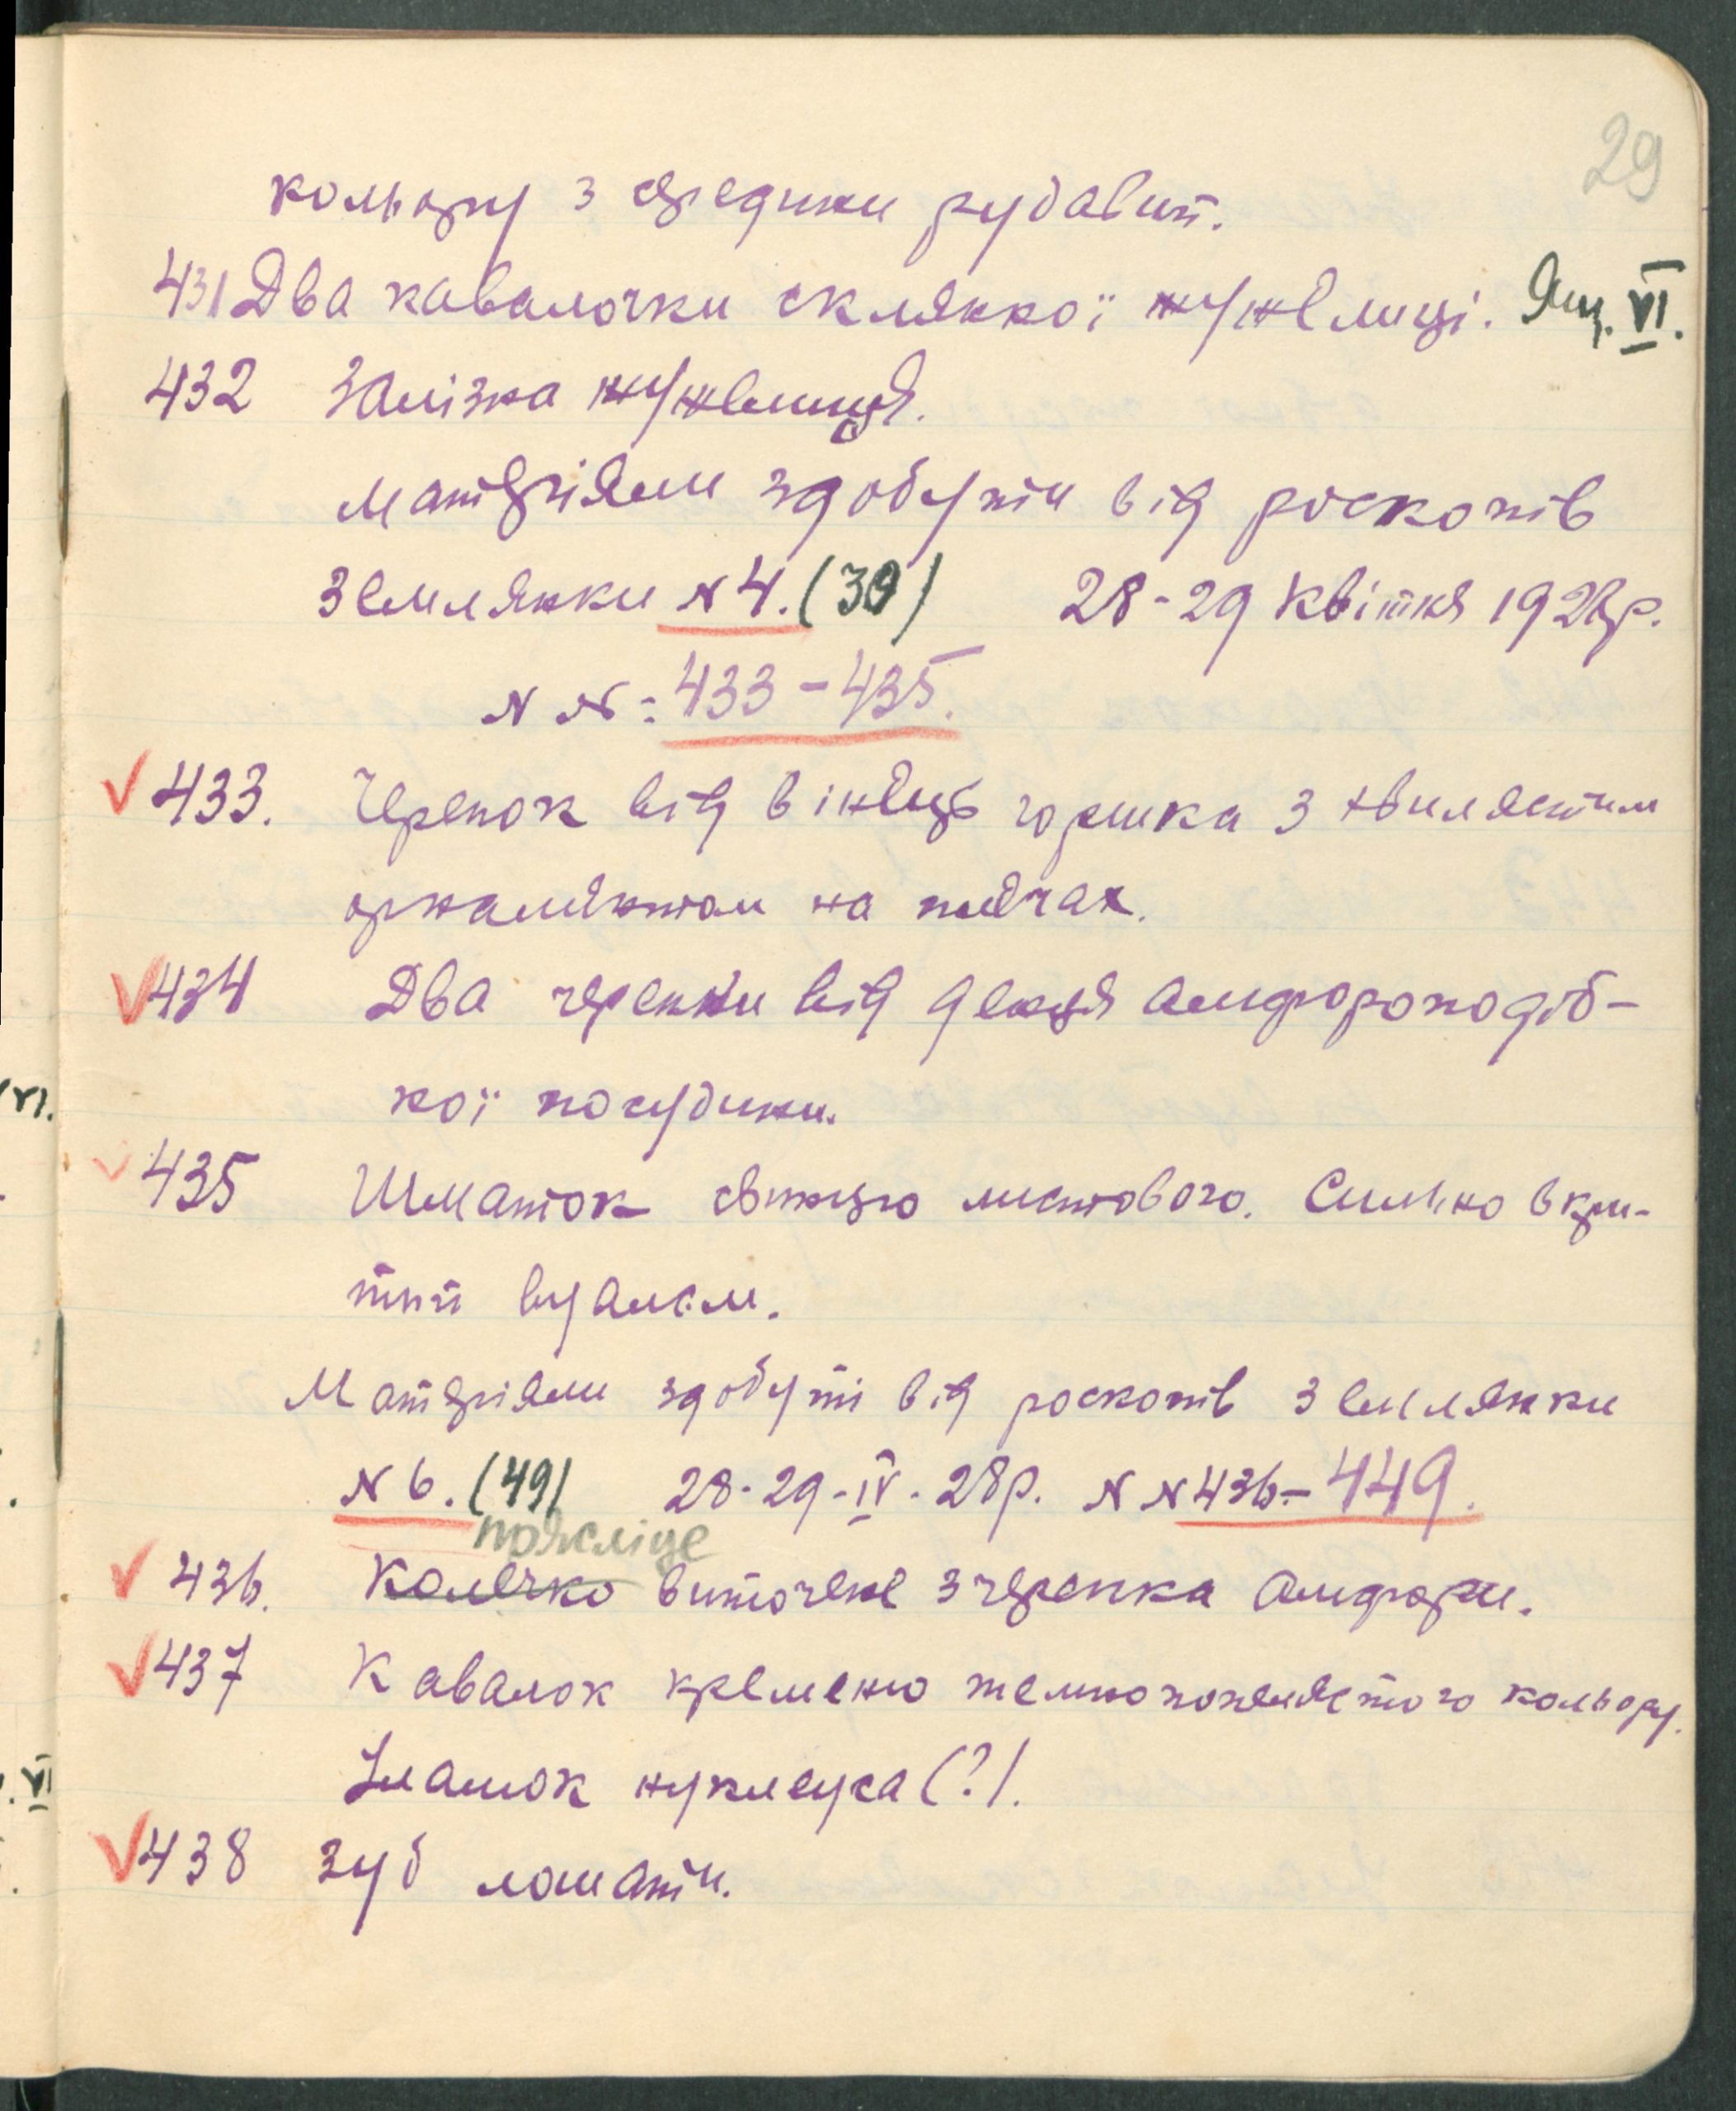 29
кольору з середини рудавий.
431 Два кавалочки склянної жужелиці. Ящ. VI.
432 Залізна жужелиця.
Матеріяли здобути від роскопів
Землянки № 4. (39) 28-29 Квітня 1928р.
N №: 433-435.
433. Черепок від вінець горшка з хвилястим
орнаментом на плечах.
434 Два черепки від денця амфороподіб-
ної посудини.
435 Шматок свинцю листового. Сильно вкри-
тий вугалем.
Матеріяли здобуті від роскопів Землянки
N 6. (49) 28-29-IV-28р. N N 436-449.
пряслице
436. Колечко виточене з черепка амфори.
437 Кавалок кременю темнопопелястого кольору.
Уламок нуклеуса (?).
438 Зуб лошати.
VI.
VI